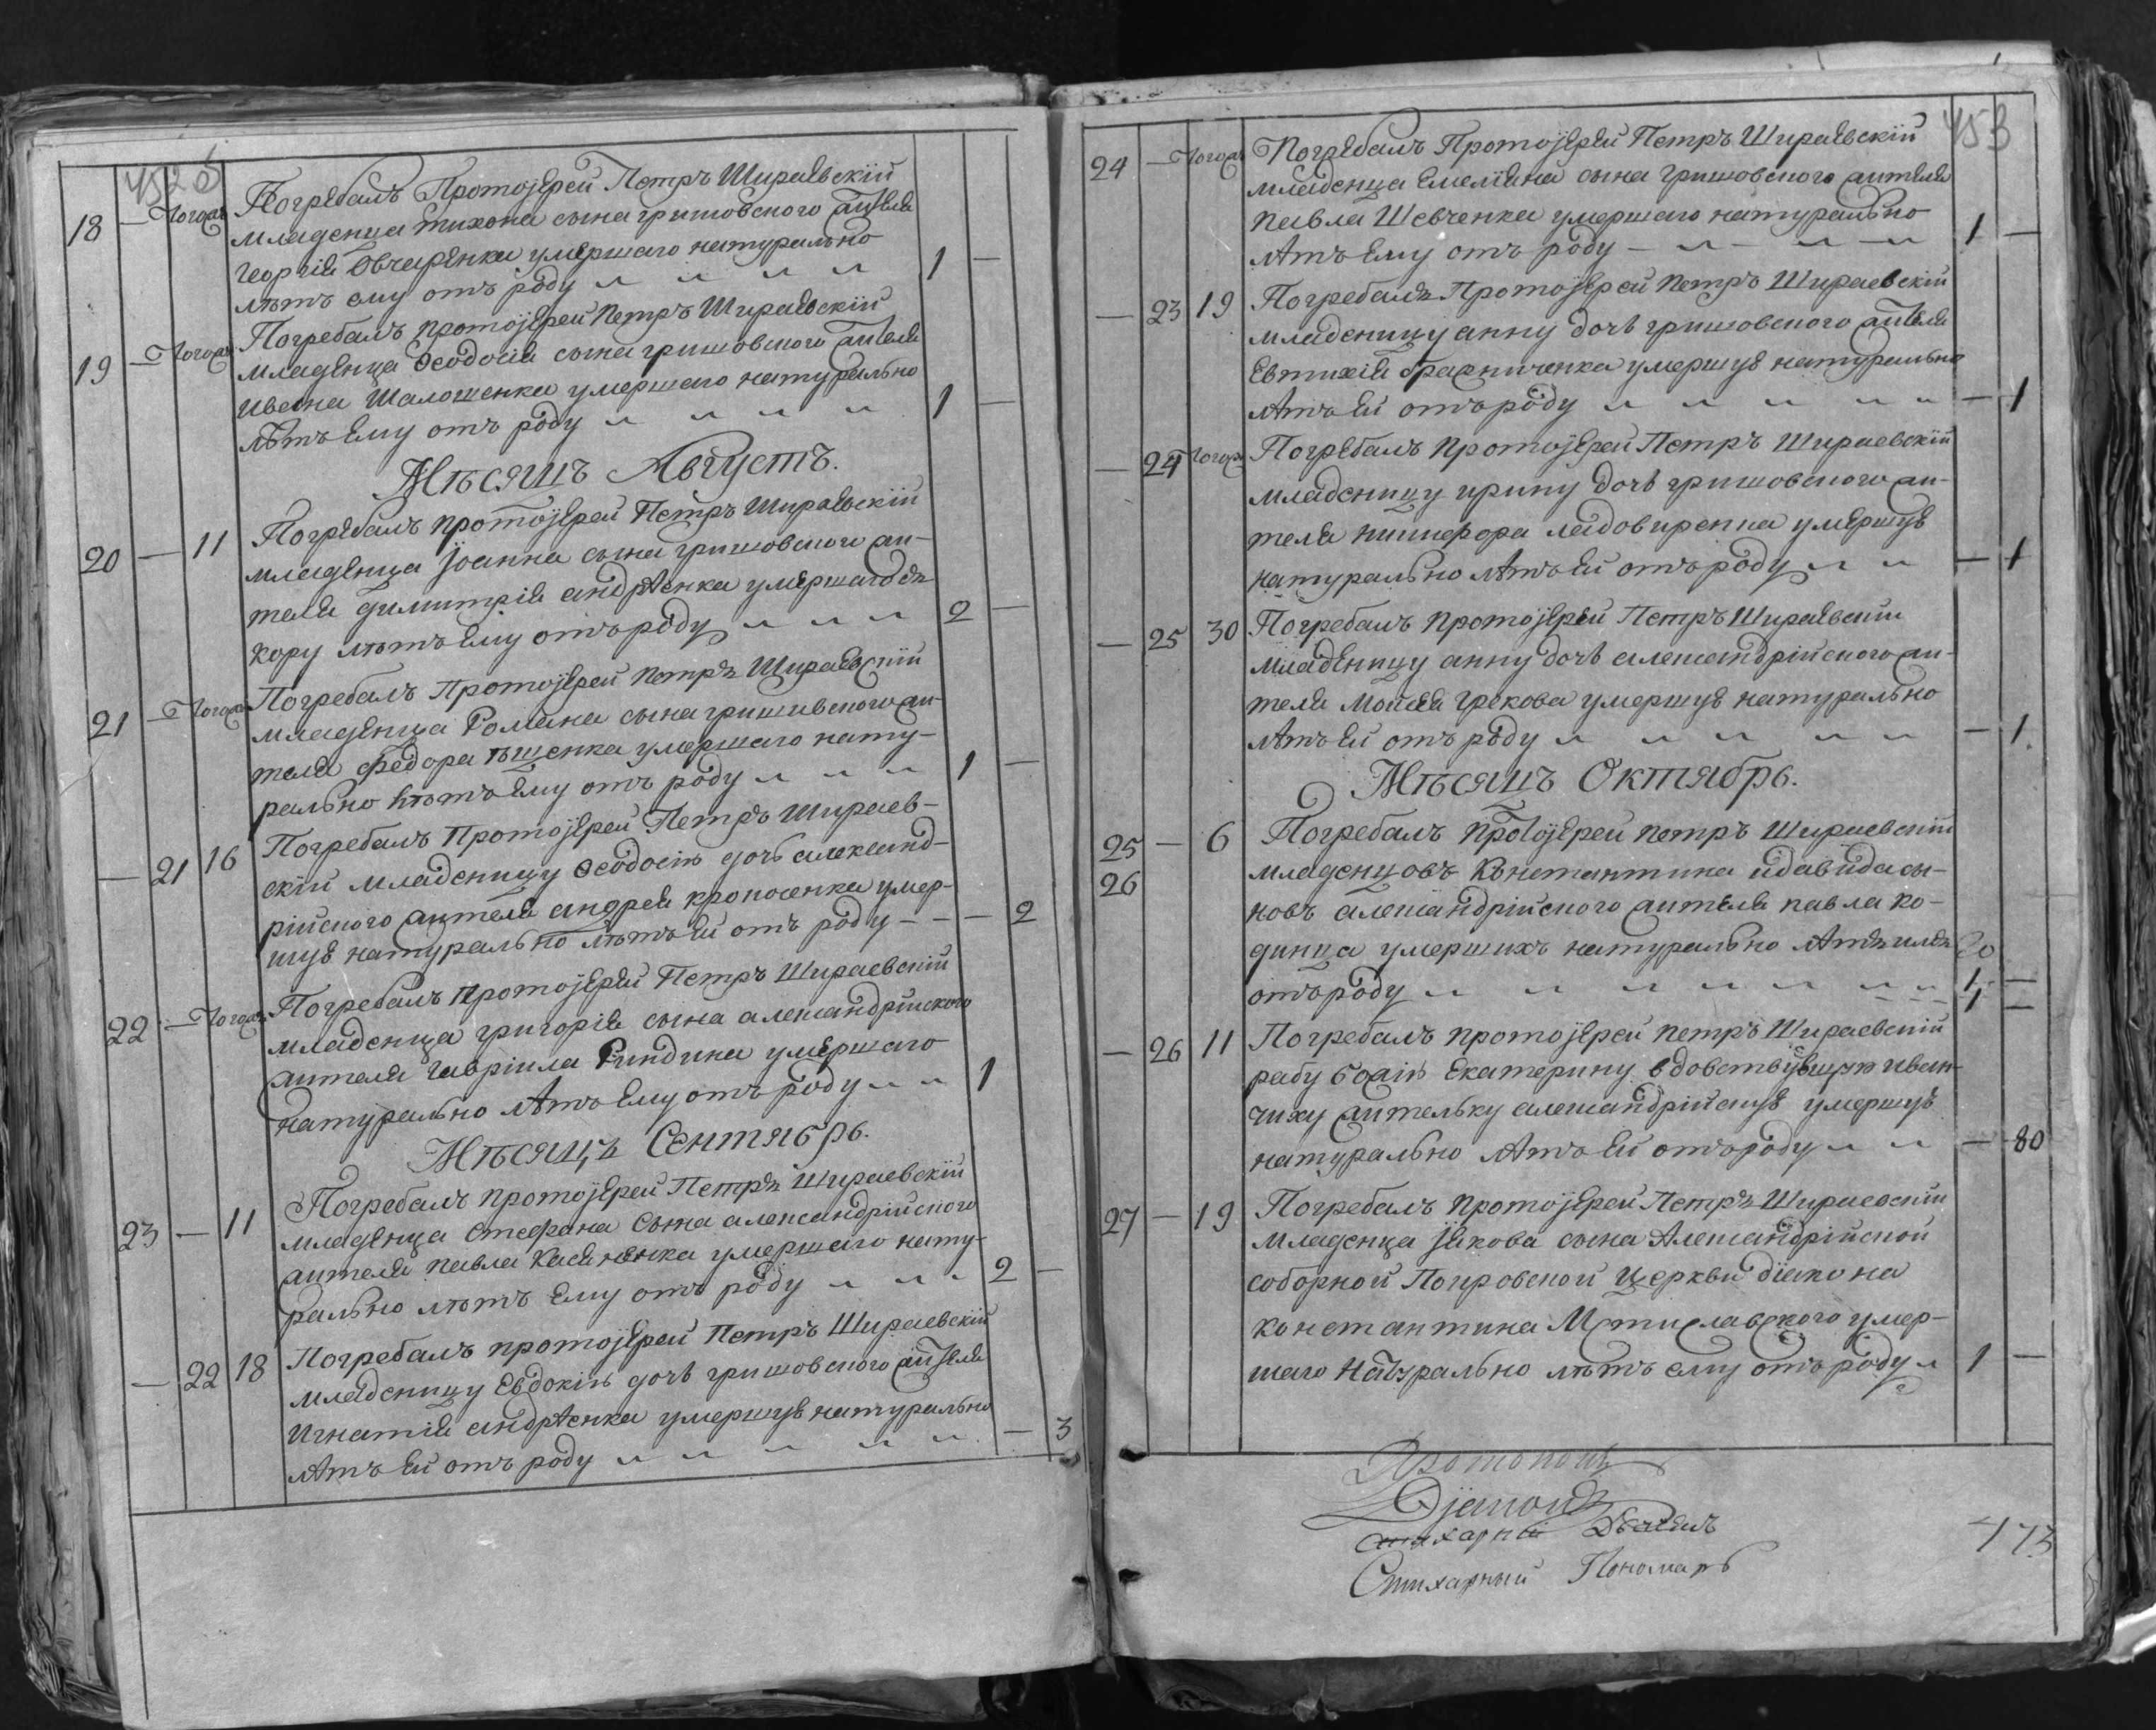 452
18 — Тогож Погребалъ Протоіерей Петръ Шираевскій
младенца тихона сына гришовского жителя
георгія Овчаренка умершаго натурально
лѣтъ ему отъ роду 1 —
19 — Тогож Погребалъ протоіерей Петръ Шираевскій
младенца Ѳеодосія сына гришовского жителя
ивана умершаго натурально
лѣтъ Ему отъ роду 1 —
Мѣсяцъ Августъ.
20 — 11 Погребалъ протоіерей Петръ Шираевскій
младенца Іоанна сына гришовского жи-
теля димитрія андрѣенка умершаго въ
кору лѣтъ Ему отъ роду 2 —
21 — Тогож Погребалъ Протоіерей Петръ Шираевскій
младенца Романа сына гришивского жи-
теля Федора умершаго нату-
рально лѣтъ Ему отъ роду 1 —
— 21 16 Погребалъ Протоіерей Петръ Шираев-
скій младеницу Ѳеодосію дочь александ-
рійского жителя андрея умер-
шую натурально лѣтъ ей отъ роду — — — 2
22 — Тогож Погребалъ Протоіерей Петръ Шираевскій
младенца григорія сына александрійского
жителя гавріила Риндина умершаго
натурально лѣтъ Ему отъ роду 1
Мѣсяцъ Сентябрь.
23 — 11 Погребалъ протоіерей Петръ Шираевскій
младенца Стефана Сына александрійского
жителя павла Касяненка умершаго нату-
рально лѣтъ Ему отъ роду 2 —
— 22 18 Погребалъ протоіерей Петръ Шираевскій
младеницу Евдокію дочь гришовского жителя
Игнатія андрѣенка умершую натурально
лѣтъ Ей отъ роду — 3
453
24 — Тогож Погребалъ Протоіерей Петръ Шираевскій
младенца Емеліяна сына гришовского жителя
павла Шевченка умершаго натурально
лѣтъ Ему отъ роду 1 —
— 23 19 Погребалъ Протоіерей Петръ Шираевскій
младеницу анну дочь гришовского жителя
Евтихія умершую натурально
лѣтъ Ей отъ роду — 1
— 24 Тогож Погребалъ Протоіерей Петръ Шираевскій
младеницу ирину дочь гришовского жи-
теля никифора умершую
натурально лѣтъ ей отъ роду — 1
— 25 30 Погребалъ протоіерей Петръ Шираевскій
младеницу анну дочь александрійского жи-
теля Моисея грекова умершую натурально
лѣтъ Ей отъ роду — 1
Мѣсяцъ Октябрь.
25 — 6 Погребалъ протоіерей петръ Шираевскій
26 младенцовъ Константина и давида сы-
новъ александрійского жителя павла ко-
динца умершихъ натурально лѣтъ имъ
отъ роду 1 —
1 —
— 26 11 Погребалъ протоіерей петръ Шираевскій
рабу божію Екатерину вдовствующую иван-
чиху жительку александрійскую умершую
натурально лѣтъ Ей отъ роду — 80
27 — 19 Погребалъ Протоіерей Петръ Шираевскій
младенца Іакова сына Александрійской
соборной Покровской Церкви діакона
константина Мстиславского умер-
шаго натурально лѣтъ ему отъ роду 1 —
Протопопъ
Діаконъ
стихарный Дьячекъ
Стихарный Пономарь